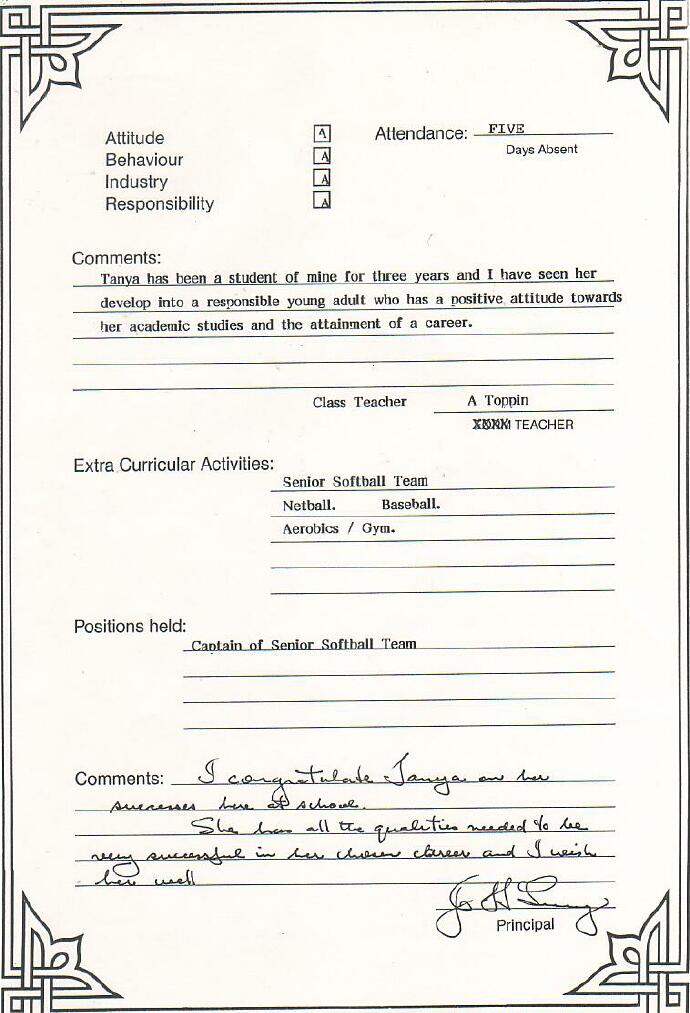 Attitude A Attendance: FIVE
Behaviour A Days Absent
Industry A
Responsibility A
Comments:
Tanya has been a student of mine for three years and I have seen her
develop into a responsible young adult who has a positive attitude towards
her academic studies and the attainment of a career.
Class Teacher A Toppin
TEACHER
Extra Curricular Activities:
Senior Softball Team
Netball. Baseball.
Aerobics / Gym.
Positions held:
Captain of Senior Softball Team
Comments: I congratulate Tanya on her
successes here at school.
She has all the qualities needed to be
very successful in her chosen career and I wish
her well
Principal